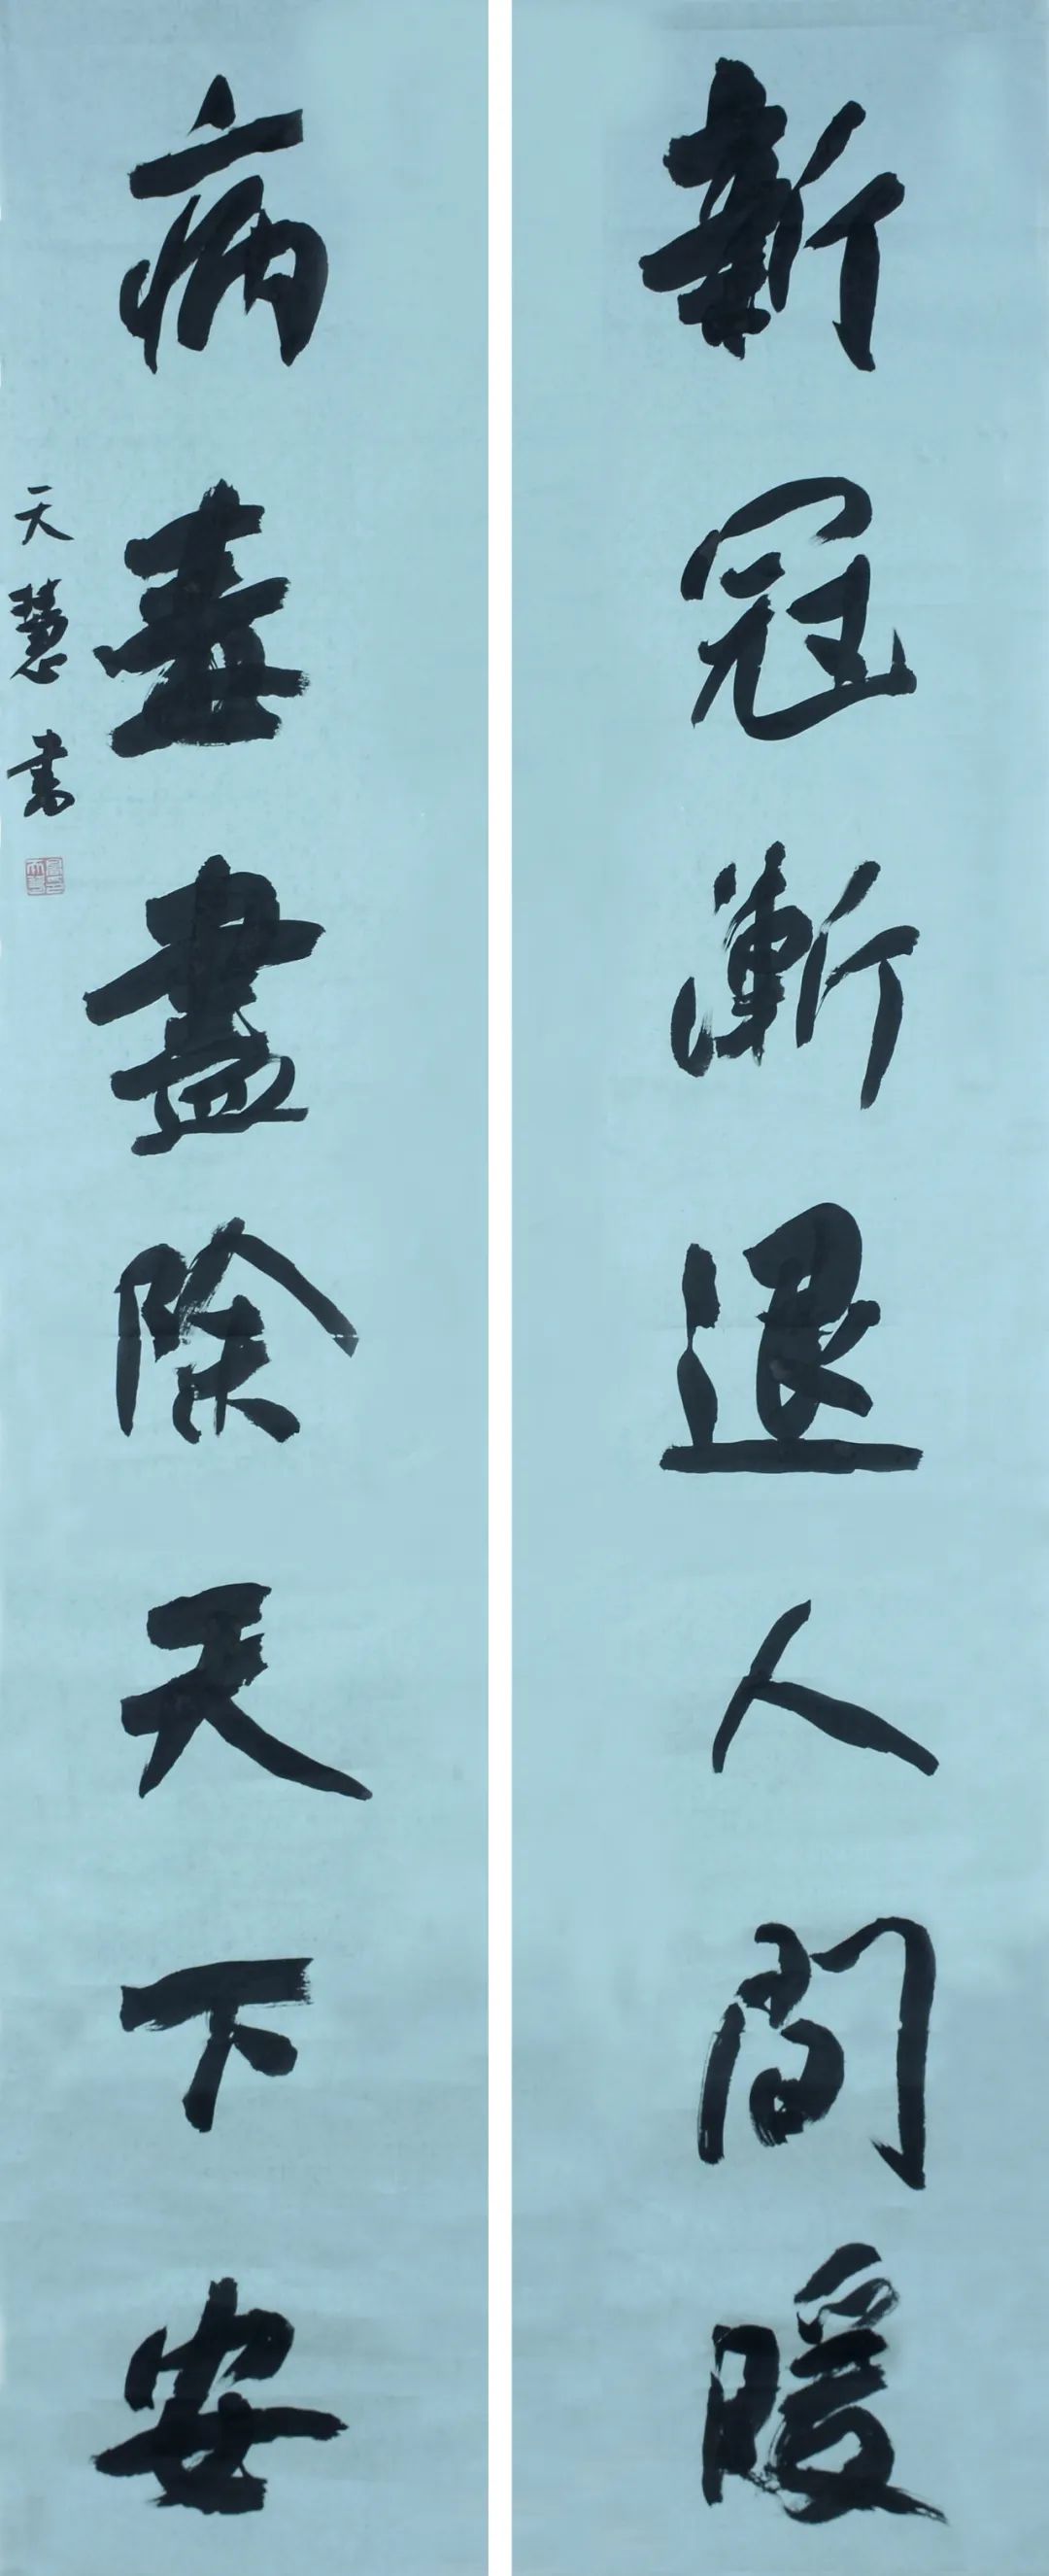 新冠漸退人间暖
病毒盡除天下安
天慧书